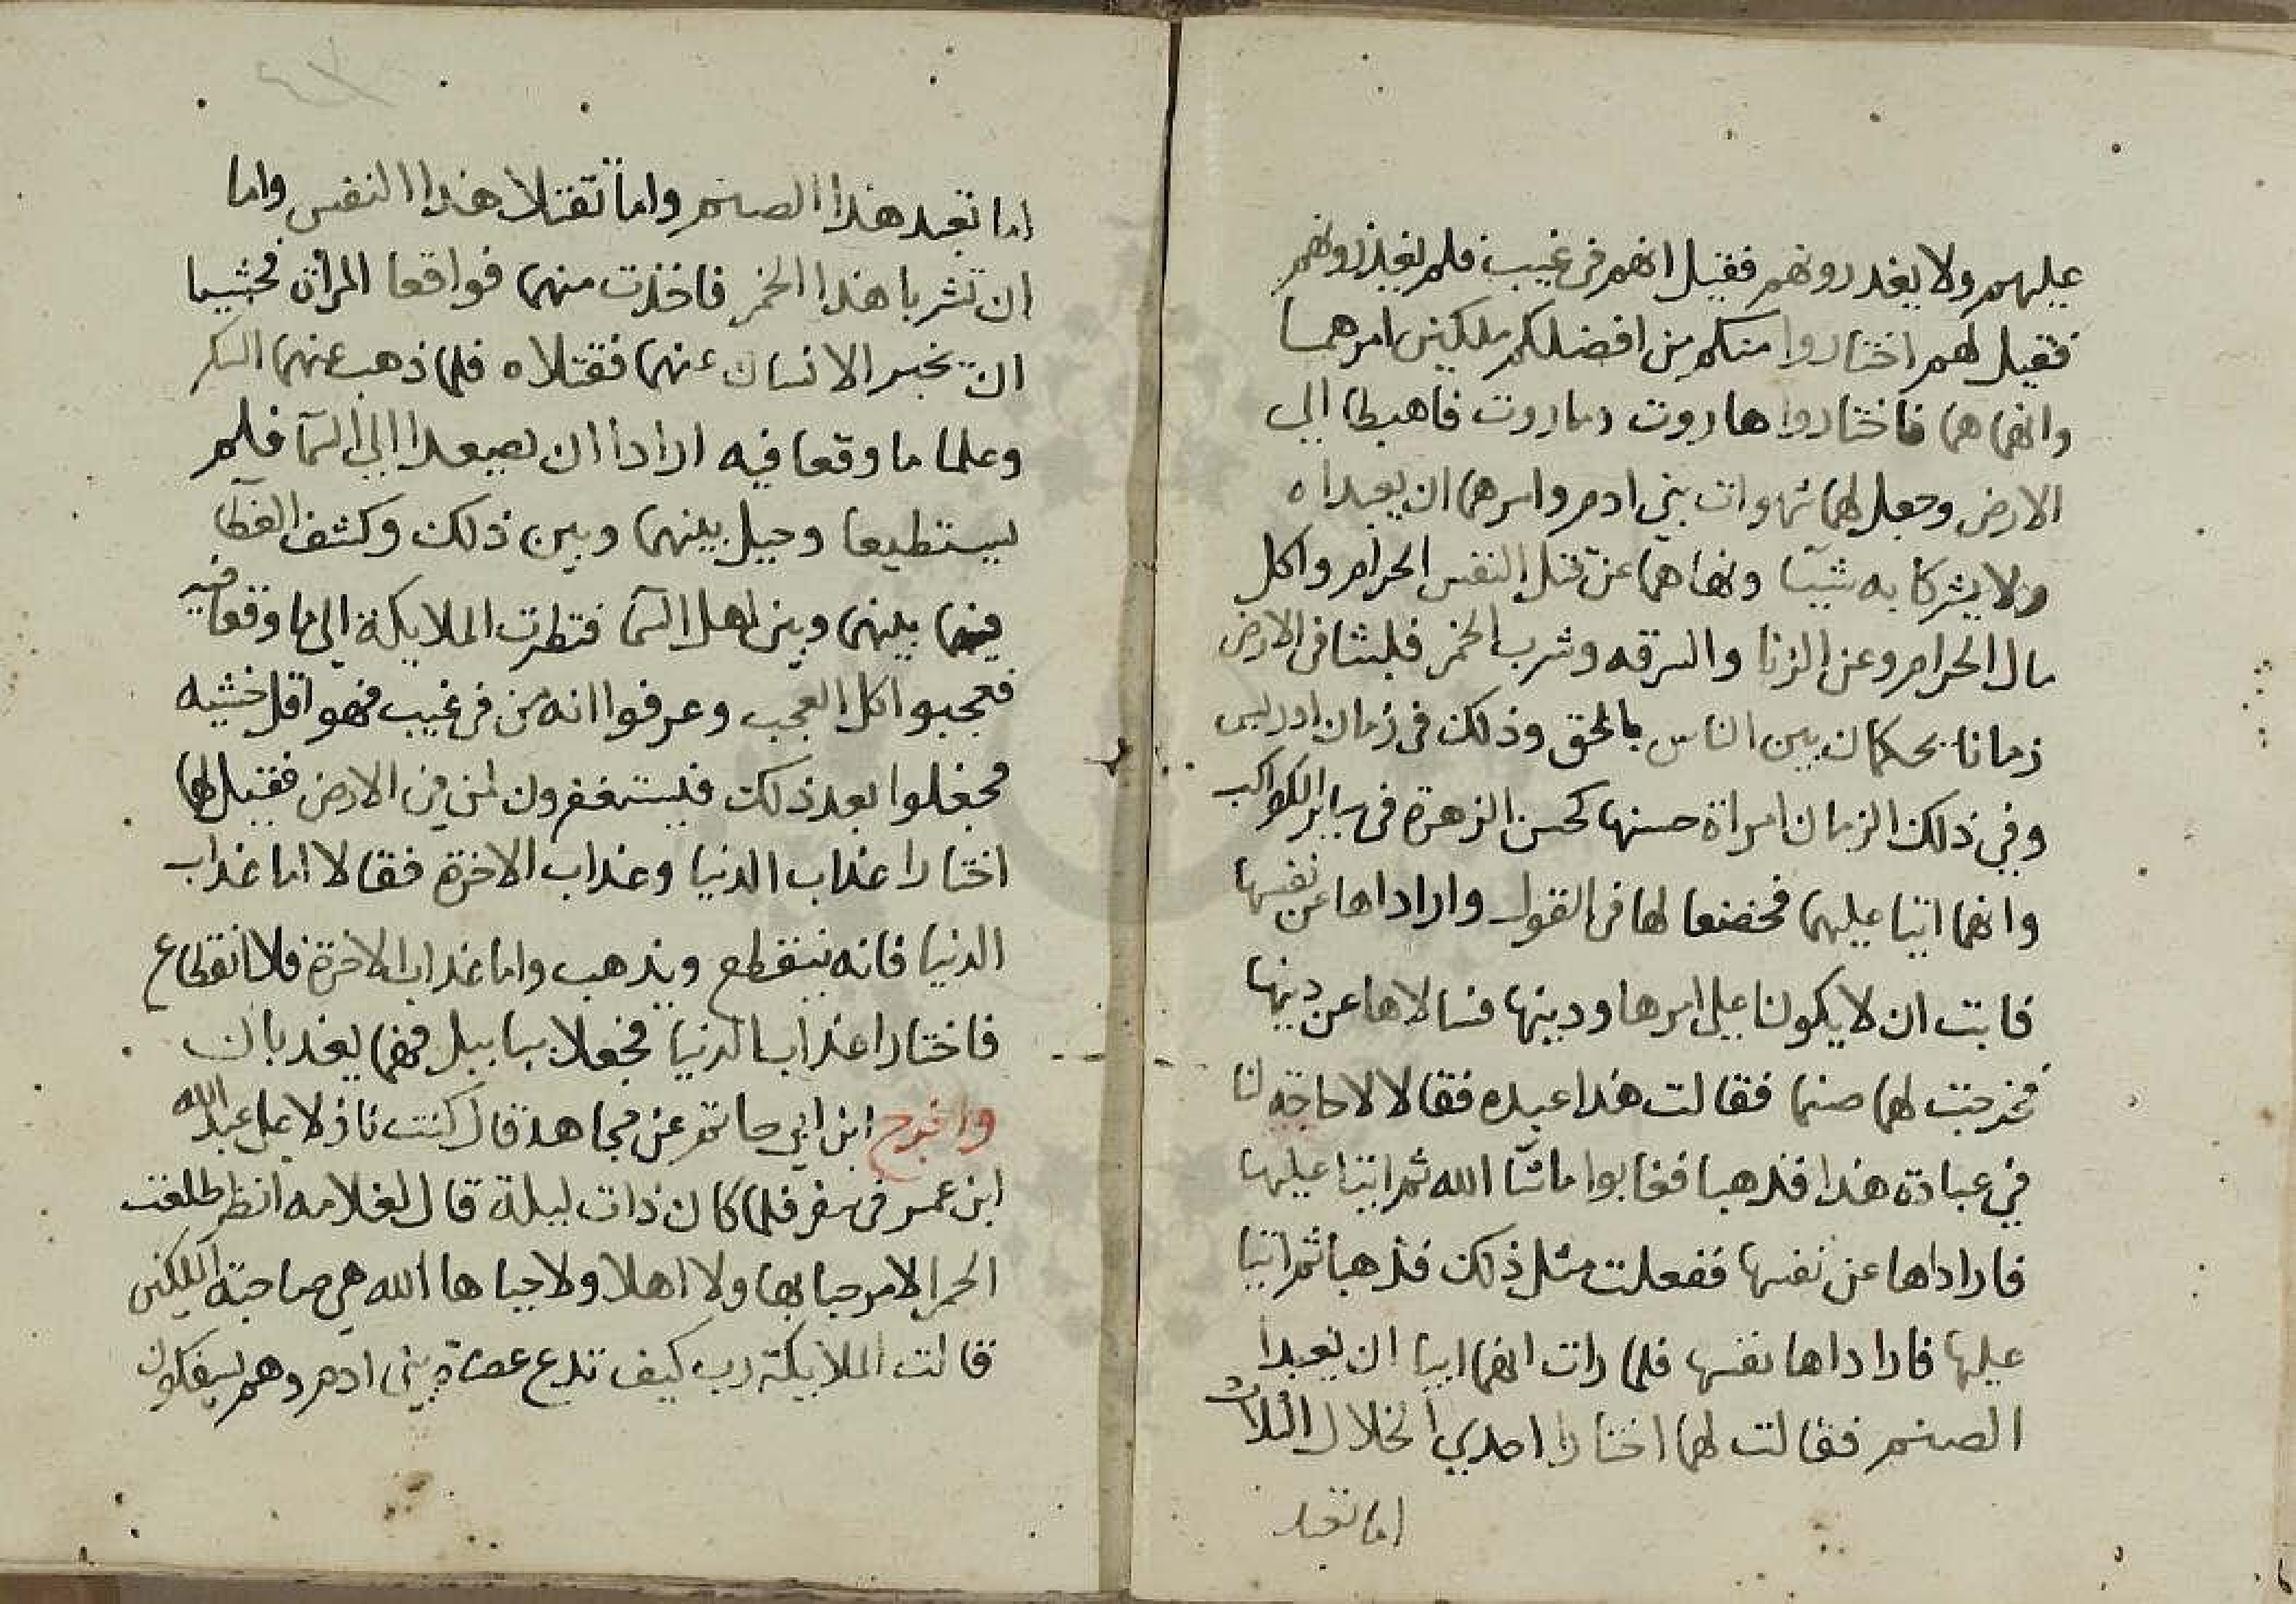 عليهم ولا يعذرونهم فقيل انهم في غيب فلم يعذرونهم
فقيل لهم اختاروا منكم من افضلكم ملكين امرهما
وانهاهما فاختاروا هاروت وماروت فاهبطا الي
الارض وجعل لهما شهوات بني ادم وامرهما ان يعبداه
ولا يشركا به شيئا ونهاهما عن قتل النفس الحرام واكل
مال الحرام وعن الزنا والسرقه وشرب الخمر فلبثا في الارض
زمانا يحكمان بين الناس بالحق وذلك في زمان ادريس
وفي ذلك الزمان امراة حسنها كحسن الزهرة في ساير الكواكب
وانهما اتيا عليها فخضعا لها في القول واراداها عن نفسها
فابت ان لا يكونا علي امرها ودينها فسالاها عن دينها
فخرجت لهما صنما فقالت هذا عبده فقالا لا حاجة لنا
في عبادة هذا فذهبا فغابوا ما شآ الله ثم اتيا عليها
فاراداها عن نفسها ففعلت مثل ذلك فذهبا ثم اتيا
عليها فاراداها نفسها فلما رات انهما ابيا ان يعبدا
الصنم فقالت لهما اختارا احدي الخلال الثلاث
اما تعبد
اما تعبد هذا الصنم واما تقتلا هذا النفس واما
ان تشربا هذا الخمر فاخذت منهما فواقعا المراة فخشيا
ان يخبر الانسان عنهما فقتلاه فلما ذهب عنهما السكر
وعلما ما وقعا فيه ارادا ان يصعدا الي السمآ فلم
يستطيعا وحيل بينهما وبين ذلك وكشف الغطآ
فيما بينهما وبين اهل السمآ فنظرت الملايكة الي ما وقعا فيه
فعجبوا كل العجب وعرفوا انه من في غيب فهو اقل خشيه
فجعلوا بعد ذلك فليستغفرون لمن في الارض فقيل لهما
اختارا عذاب الدنيا وعذاب الاخرة فقالا اما عذاب
الدنيا فانه ينقطع ويذهب واما عذاب الاخرة فلا انقطاع
فاختارا عذاب الدنيا فجعلا ببابيل فهما يعذبان
واخرج ابن ابي حاتم عن مجاهد قال كنت نازلا علي عبد الله
ابن عمر في سفر فلما كان ذات ليلة قال لغلامه انظر طلعت
الحمرا لا مرحبا بها ولا اهلا ولا حياها الله هي صاحبة الملكين
قالت الملايكة رب كيف تدع عصاة بني ادم وهم يسفكون